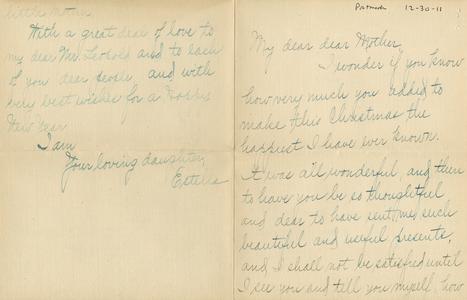 little
With a great deal of love to
my dear Mr. Leopold and to each
of you dear people, and with
very best wishes for a Happy
New Year
I am
Your loving daughter,
Estella
Postmark 12-30-11
My dear dear Mother,
I wonder if you know
how very much you added to
make this Christmas the
happiest I have ever known.
It was all wonderful, and then
to have you be so thoughtful
and dear to have sent me such
beautiful and useful presents,
and I shall not be satisfied until
I see you and tell you myself how